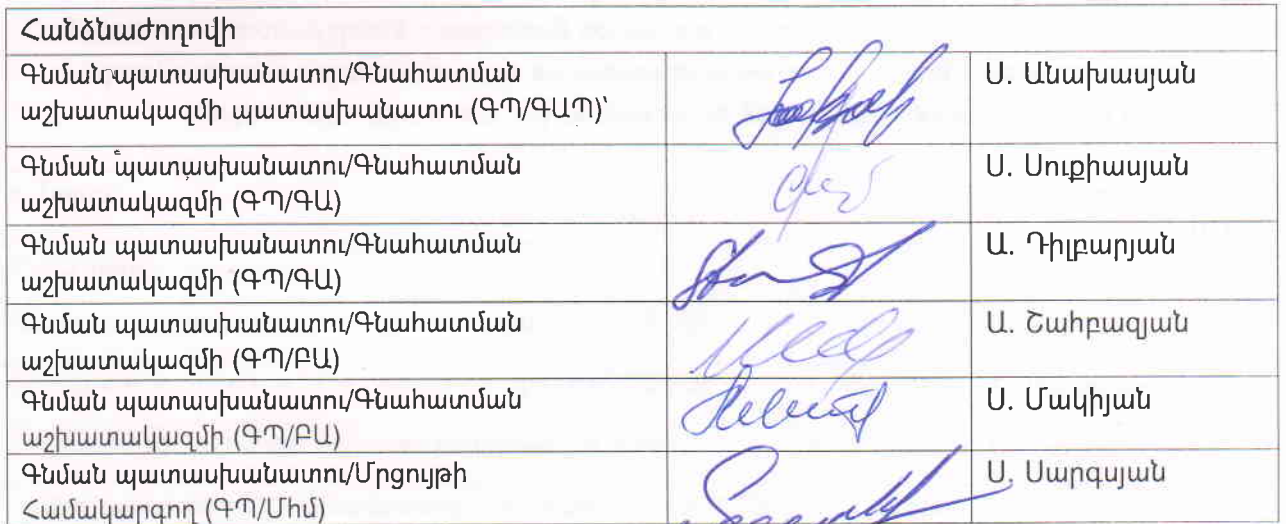 Հանձնաժողովի
Գնման պատասխանատու/Գնահատման
աշխատակազմի պատասխանատու (ԳՊ/ԳԱՊ)՝
Ս. Անախասյան
Գնման պատասխանատու/Գնահատման
աշխատակազմի (ԳՊ/ԳԱ)
Ս. Սուքիասյան
Գնման պատասխանատու/Գնահատման
աշխատակազմի (ԳՊ/ԳԱ)
Ա. Դիլբարյան
Գնման պատասխանատու/Գնահատման
աշխատակազմի (ԳՊ/ԲԱ)
Ա. Շահբազյան
Գնման պատասխանատու/Գնահատման
աշխատակազմի (ԳՊ/ԲԱ)
Ս. Մակիյան
Գնման պատասխանատու/Մրցույթի
Համակարգող (ԳՊ/Միմ)
Ս. Սարգսյան